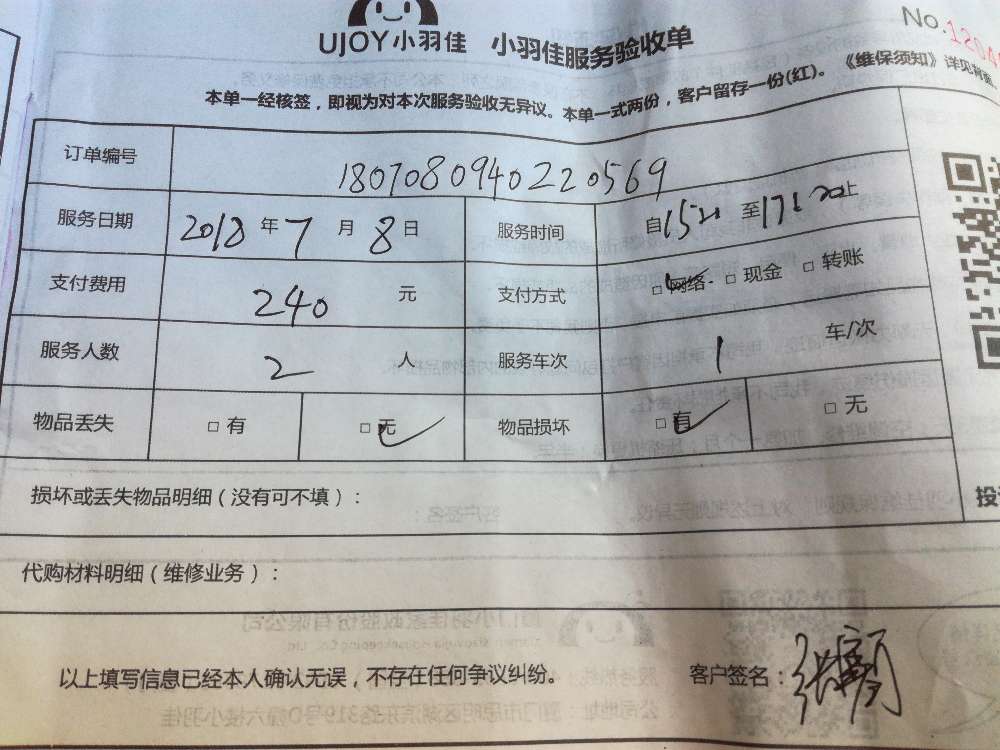 UJOY小羽佳 小羽佳服务验收单 No.1204
本单一经核签，即视为对本次服务验收无异议。本单一式两份，客户留存一份(红)。《维保须知》详见背面
订单编号 180708094022 0569
服务日期 2018 年 7 月 8 日 服务时间 自 至
支付费用 240 元 支付方式 □网络 □现金 □转账
服务人数 2 人 服务车次 1 车/次
物品丢失 □有 □无 物品损坏 □有 □无
损坏或丢失物品明细（没有可不填）：
投
代购材料明细（维修业务）：
以上填写信息已经本人确认无误，不存在任何争议纠纷。 客户签名：